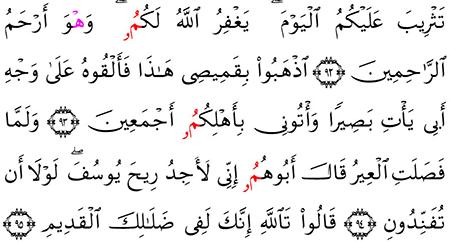 تَثْرِيبَ عَلَيْكُمُ ٱلْيَوْمَ ۖ يَغْفِرُ ٱللَّهُ لَكُمُۥ وَهْوَ أَرْحَمُ
ٱلرَّٰحِمِينَ ﴿٩٢﴾ ٱذْهَبُوا۟ بِقَمِيصِى هَٰذَا فَأَلْقُوهُ عَلَىٰ وَجْهِ
أَبِى يَأْتِ بَصِيرًا وَأْتُونِى بِأَهْلِكُمُۥ أَجْمَعِينَ ﴿٩٣﴾ وَلَمَّا
فَصَلَتِ ٱلْعِيرُ قَالَ أَبُوهُمُۥ إِنِّى لَأَجِدُ رِيحَ يُوسُفَ ۖ لَوْلَا أَن
تُفَنِّدُونِ ﴿٩٤﴾ قَالُوا۟ تَٱللَّهِ إِنَّكَ لَفِى ضَلَٰلِكَ ٱلْقَدِيمِ ﴿٩٥﴾